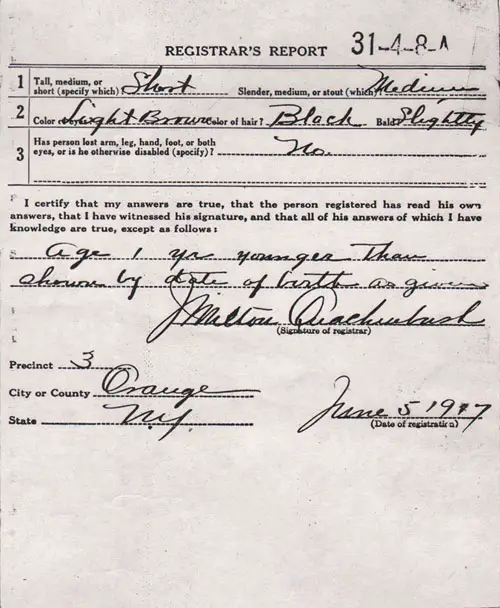 REGISTRAR'S REPORT 31-4-8-A
1 Tall, medium, or short (specify which)? Short Slender, medium, or stout (which)? Medium
2 Color of eyes? Light Brown Color of hair? Black Bald? Slightly
3 Has person lost arm, leg, hand, foot, or both eyes, or is he otherwise disabled (specify)? No.
I certify that my answers are true, that the person registered has read his own
answers, that I have witnessed his signature, and that all of his answers of which I have
knowledge are true, except as follows:
Age 1 yr younger than
shown by date of birth as given
J Milton Quackenbush
(Signature of registrar)
Precinct 3
City or County Orange
State N.Y.
June 5 1917
(Date of registration)